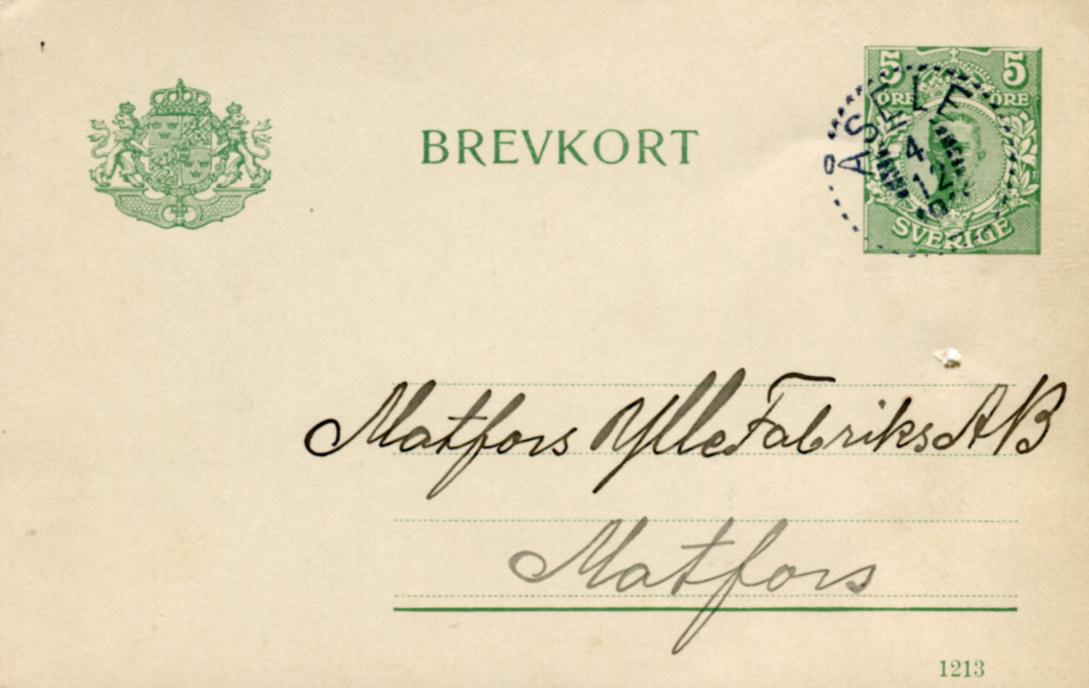 BREVKORT
5 5
ÖRE ÖRE
SVERIGE
ÅSELE
4
12
Matfors YlleFabriks AB
Matfors
1213